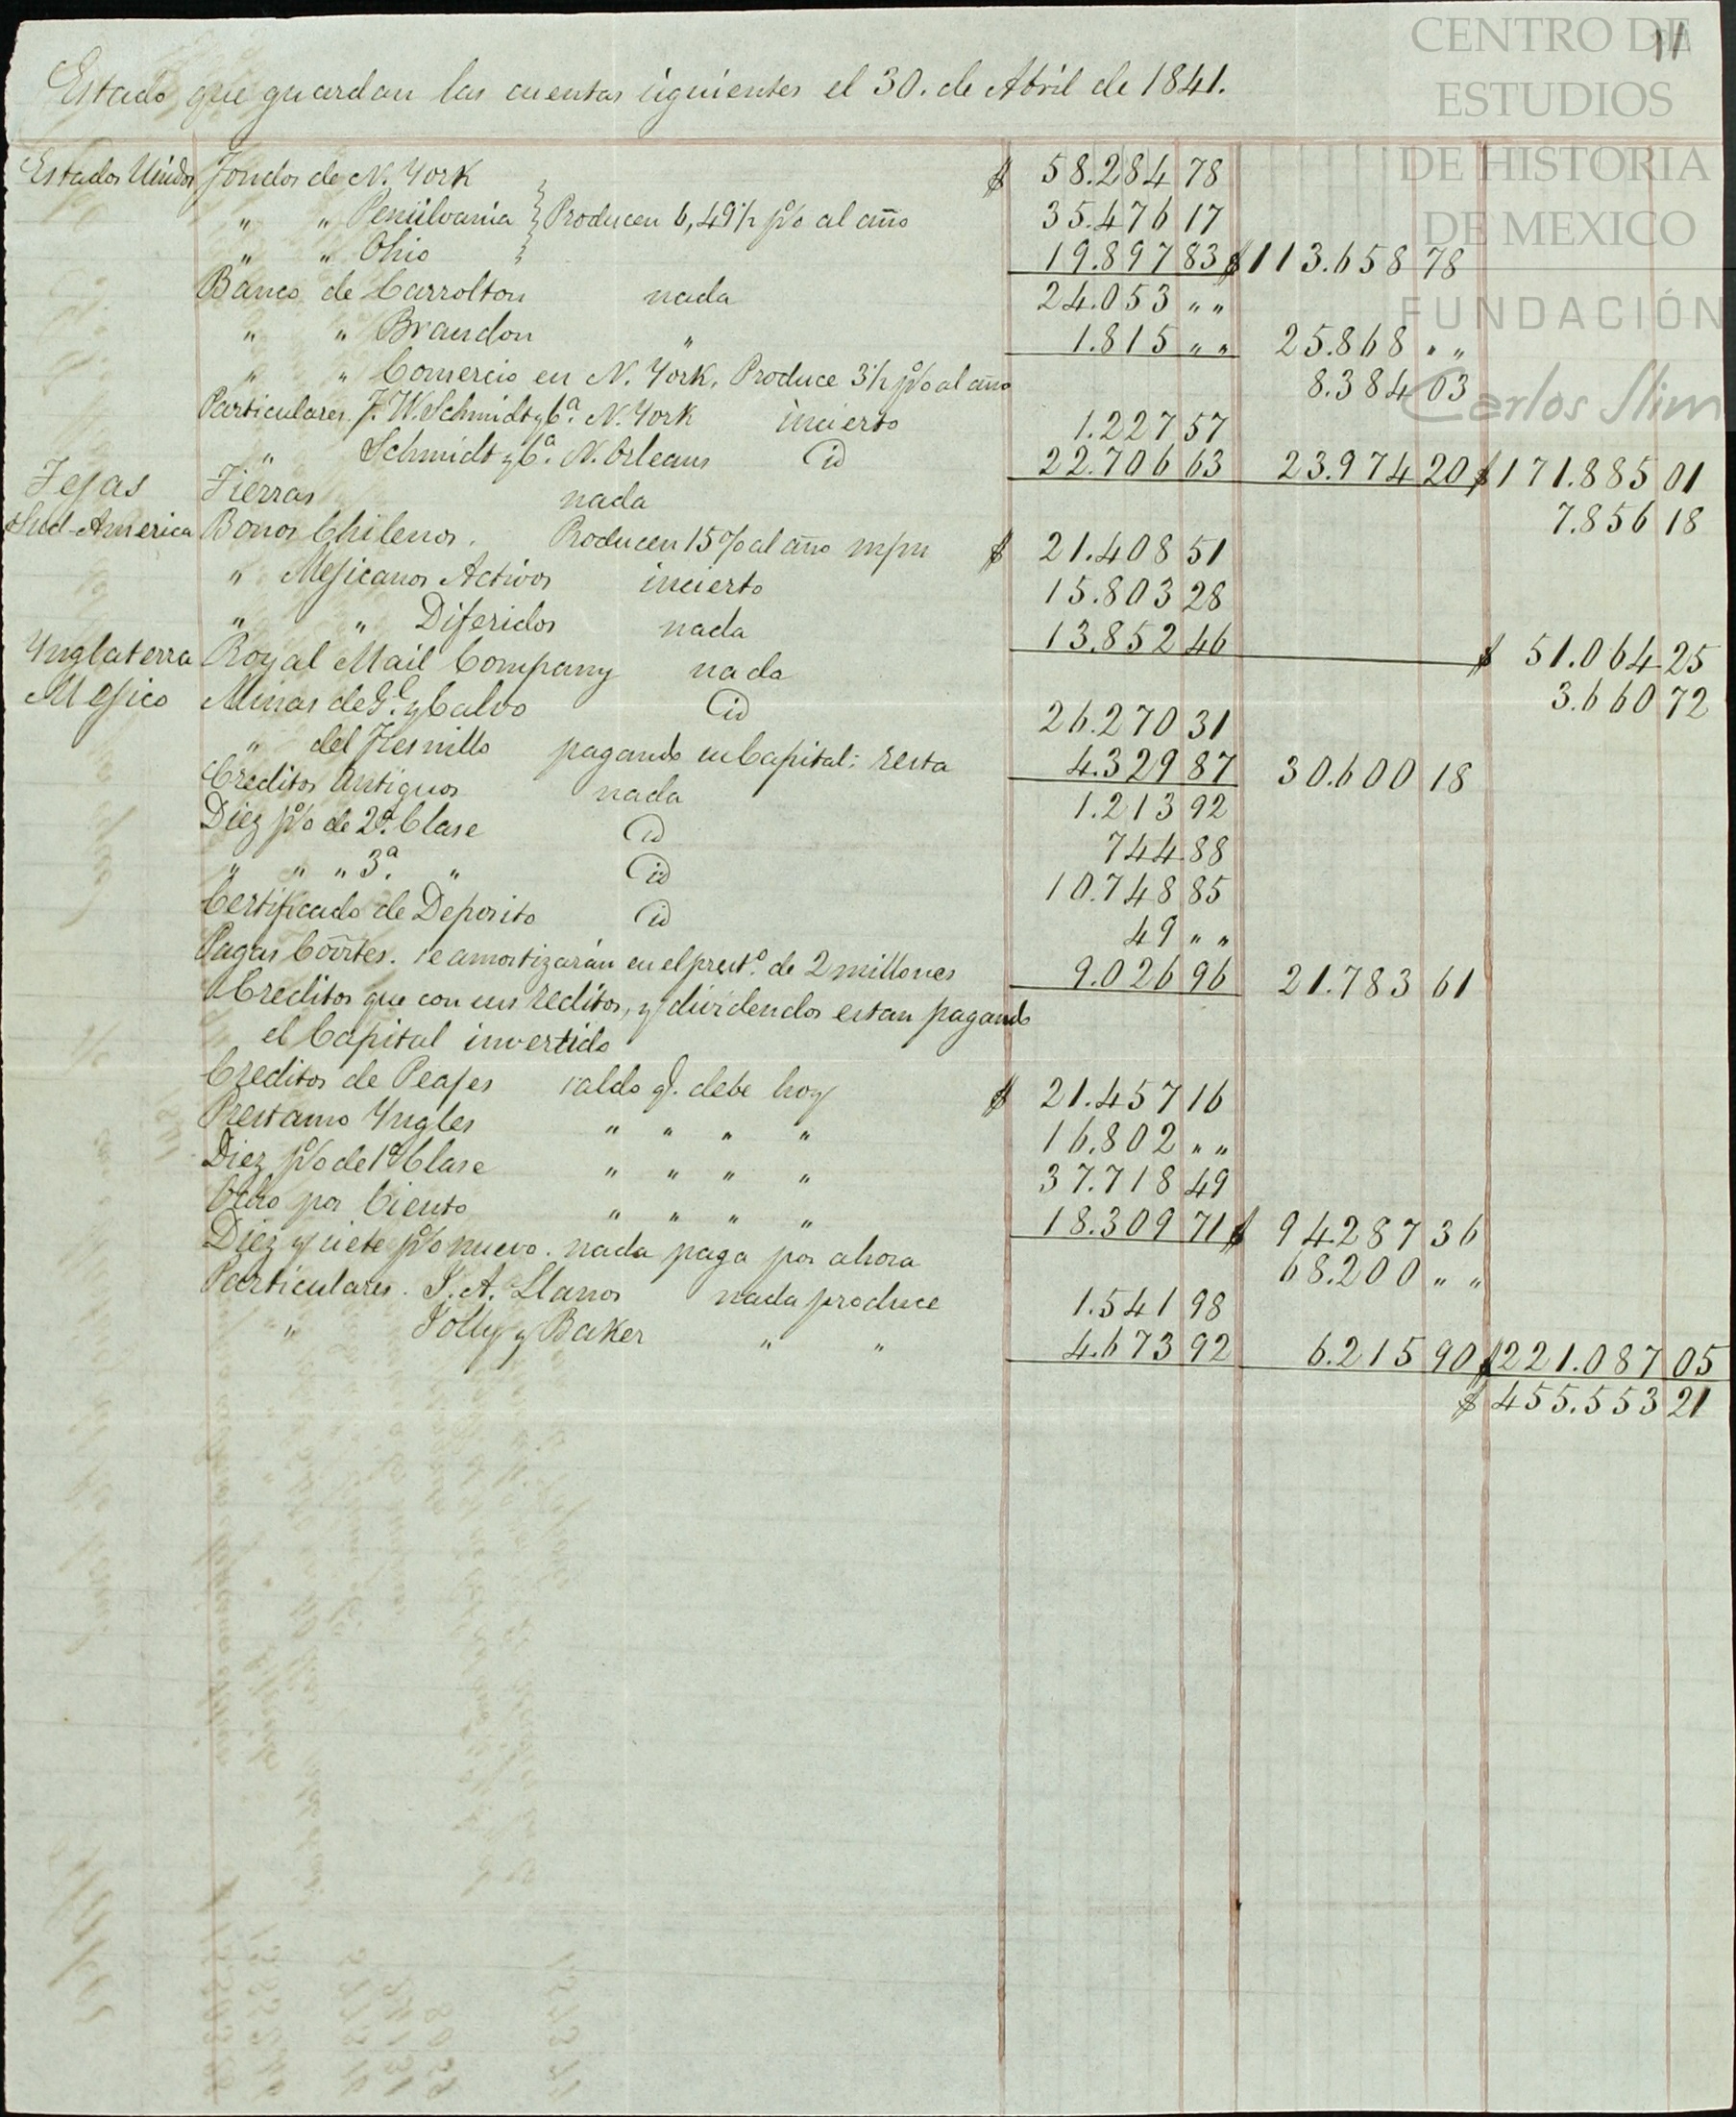 CENTRO DE
ESTUDIOS
DE HISTORIA
DE MEXICO
FUNDACIÓN
Carlos Slim
11
Estado que guardan las cuentas siguientes el 30. de Abril de 1841.
Estados Unidos Fondos de N. York $ 58.284 78
" " Pensilvania } Producen 6,49 1/2 p/o al año 35.476 17
" " Ohio 19.897 83 $ 113.658 78
Banco de Carrolton nada 24.053 " "
" " Brandon " 1.815 " " 25.868 " "
" " Comercio en N. York. Produce 3 1/2 p/o al año 8.384 03
Particulares. J. W. Schmidt y Ca. N. York incierto 1.227 57
" Schmidt y Ca. N. Orleans id 22.706 63 23.974 20 $ 171.885 01
Tejas Tierras nada 7.856 18
Sud-America Bonos Chilenos. Producen 15 % al año m/m $ 21.408 51
" Mejicanos Activos incierto 15.803 28
" " Diferidos nada 13.852 46 $ 51.064 25
Ynglaterra Royal Mail Company nada 3.660 72
Mejico Minas de Ge. y Calvo id 26.270 31
" del Fresnillo pagando su Capital: resta 4.329 87 30.600 18
Creditos Antiguos nada 1.213 92
Diez p/o de 2a. Clase id 744 88
" " " 3a. " id 10.748 85
Certificado de Deposito id 49 " "
Pagas Corrtes. se amortizarán en el prest.o de 2 millones 9.026 96 21.783 61
Creditos que con sus reditos, y dividendos estan pagando
el Capital invertido
Creditos de Peajes saldo q. debe hoy $ 21.457 16
Prestamo Yngles " " " " 16.802 " "
Diez p/o de 1a Clase " " " " 37.718 49
Ocho por Ciento " " " " 18.309 71 $ 94.287 36
Diez y siete p/o nuevo. nada paga por ahora 68.200 " "
Particulares. S. A. Llanos nada produce 1.541 98
" Jolly y Baker " " 4.673 92 6.215 90 $ 221.087 05
$ 455.553 21